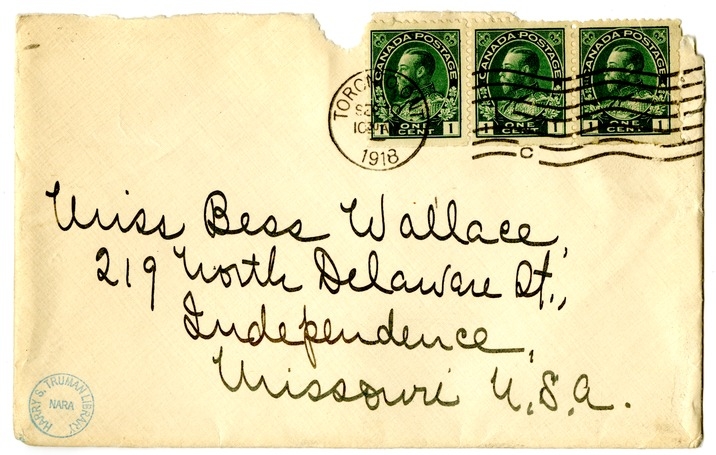 CANADA POSTAGE CANADA POSTAGE CANADA POSTAGE
1 ONE CENT 1 1 ONE CENT 1 1 ONE CENT 1
TORONTO ONT
1918
C
Miss Bess Wallace,
219 North Delaware St.,
Independence,
Missouri U.S.A.
HARRY S. TRUMAN LIBRARY
NARA